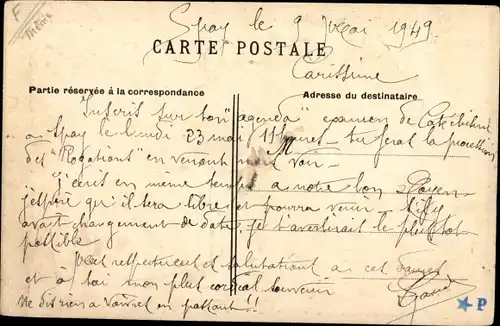 F
Spay le 9 Mai 1949
CARTE POSTALE
Carissime
Partie réservée à la correspondance
Adresse du destinataire
Inscris sur ton "agenda" examen de Catéchisme
à Spay le lundi 23 mai 11 heures - tu feras la procession
des "Rogations" en venant
J'écris en même temps à notre bon Doyen
j'espère qu'il sera libre et pourra venir s'il y
avait changement de date, je t'avertirai le plus tôt
possible
respectueuses salutations à ces dames
et à toi mon plus cordial souvenir
Ne dis rien à en passant!!
P